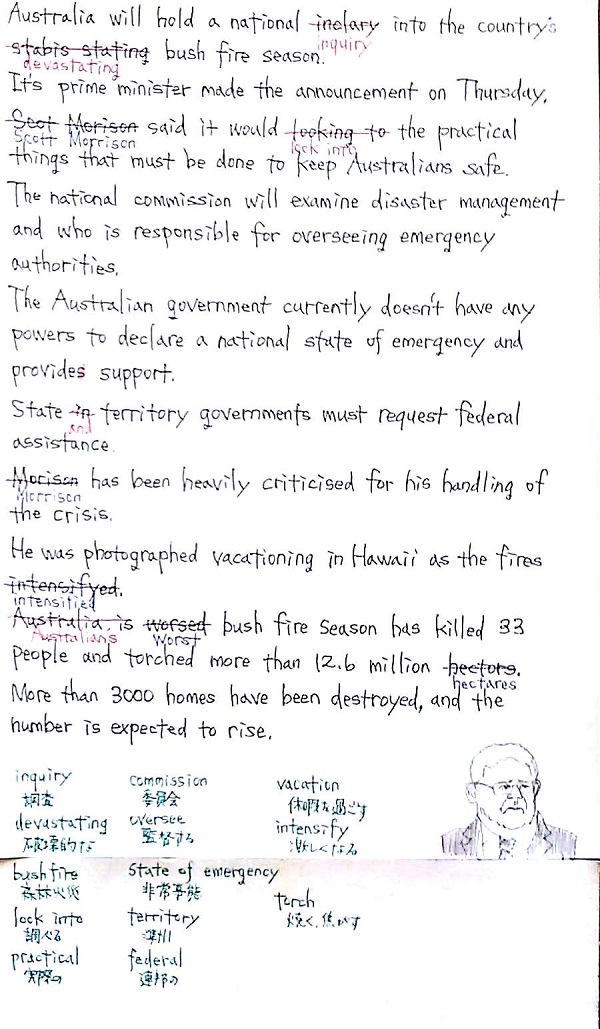 Australia will hold a national inclary into the country's
inquiry
stabis stating bush fire season.
devastating
It's prime minister made the announcement on Thursday.
Scot Morison said it would looking to the practical
Scott Morrison look into
things that must be done to keep Australians safe.
The national commission will examine disaster management
and who is responsible for overseeing emergency
authorities.
The Australian government currently doesn't have any
powers to declare a national state of emergency and
provides support.
State in territory governments must request federal
and
assistance.
Morison has been heavily criticised for his handling of
Morrison
the crisis.
He was photographed vacationing in Hawaii as the fires
intensifyed.
intensified
Australia is worsed bush fire season has killed 33
Australians worst
people and torched more than 12.6 million hectors.
hectares
More than 3000 homes have been destroyed, and the
number is expected to rise.
inquiry commission vacation
調査 委員会 休暇を過ごす
devastating oversee intensify
破壊的な 監督する 激しくなる
bushfire state of emergency torch
森林火災 非常事態 焼く、焦がす
look into territory
調べる 準州
practical federal
実際の 連邦の